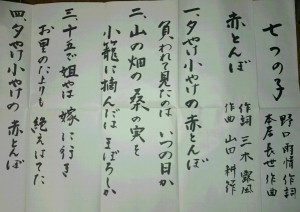 七つの子
野口雨情 作詞
本居長世 作曲
赤とんぼ
作詞 三木露風
作曲 山田耕筰
一、夕やけ小やけの赤とんぼ
負われて見たのは いつの日か
二、山の畑の 桑の実を
小籠に摘んだは まぼろしか
三、十五で姐やは 嫁に行き
お里のたよりも 絶えはてた
四、夕やけ小やけの 赤とんぼ